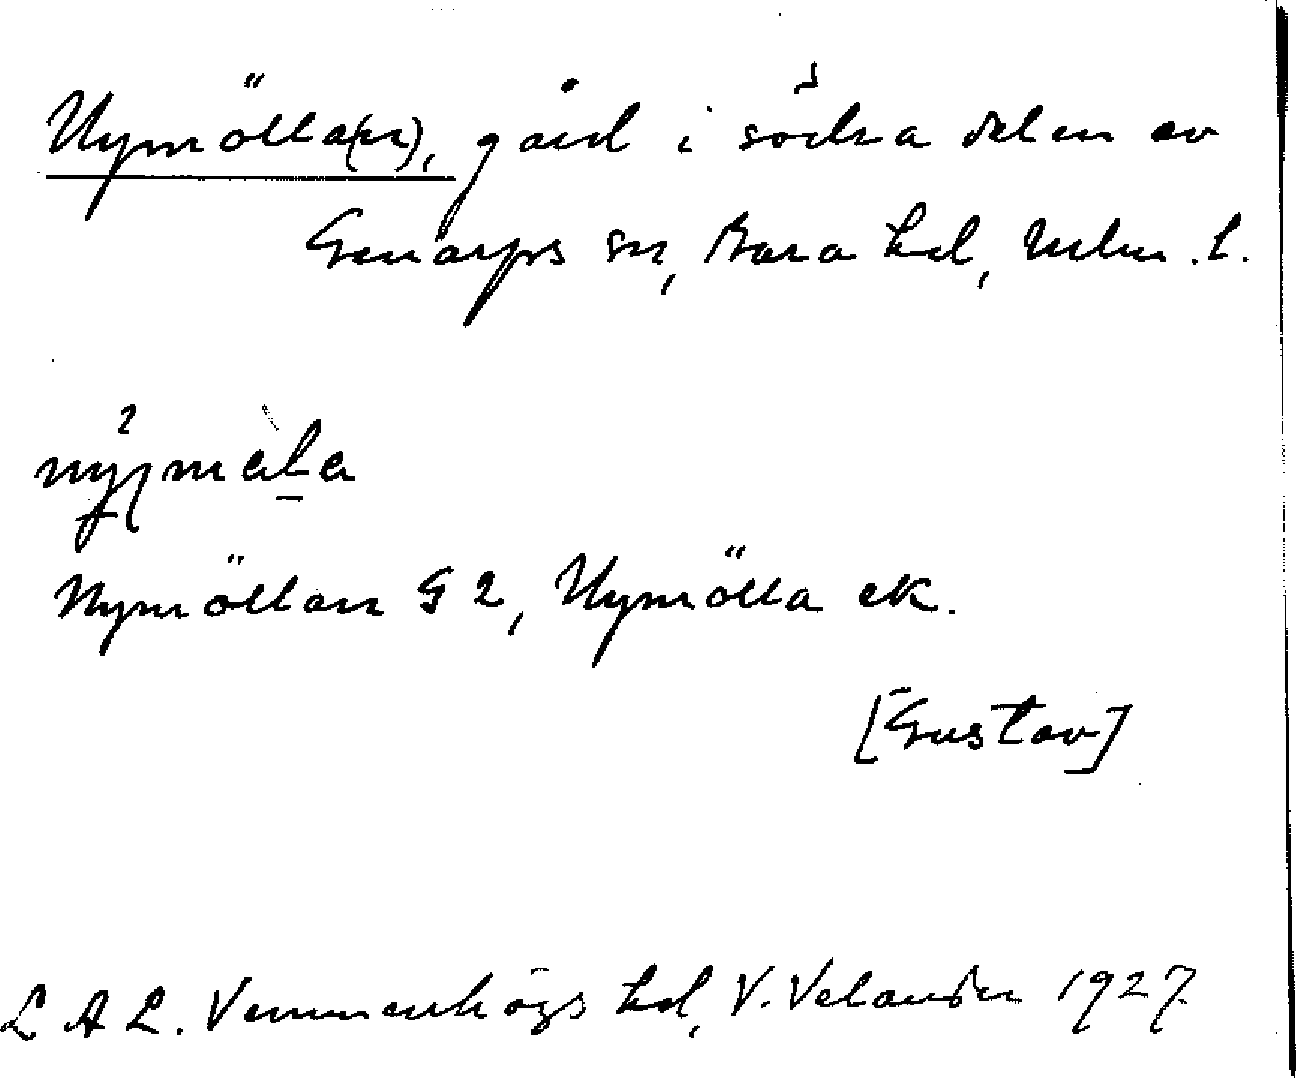 Nymölla(n), gård i södra delen av
Genarps sn, Bara hd, Mlm. l.
Nymöllan G 2, Nymölla ek.
[Gustav]
L A L. Vemmenhögs hd, V. Velander 1927